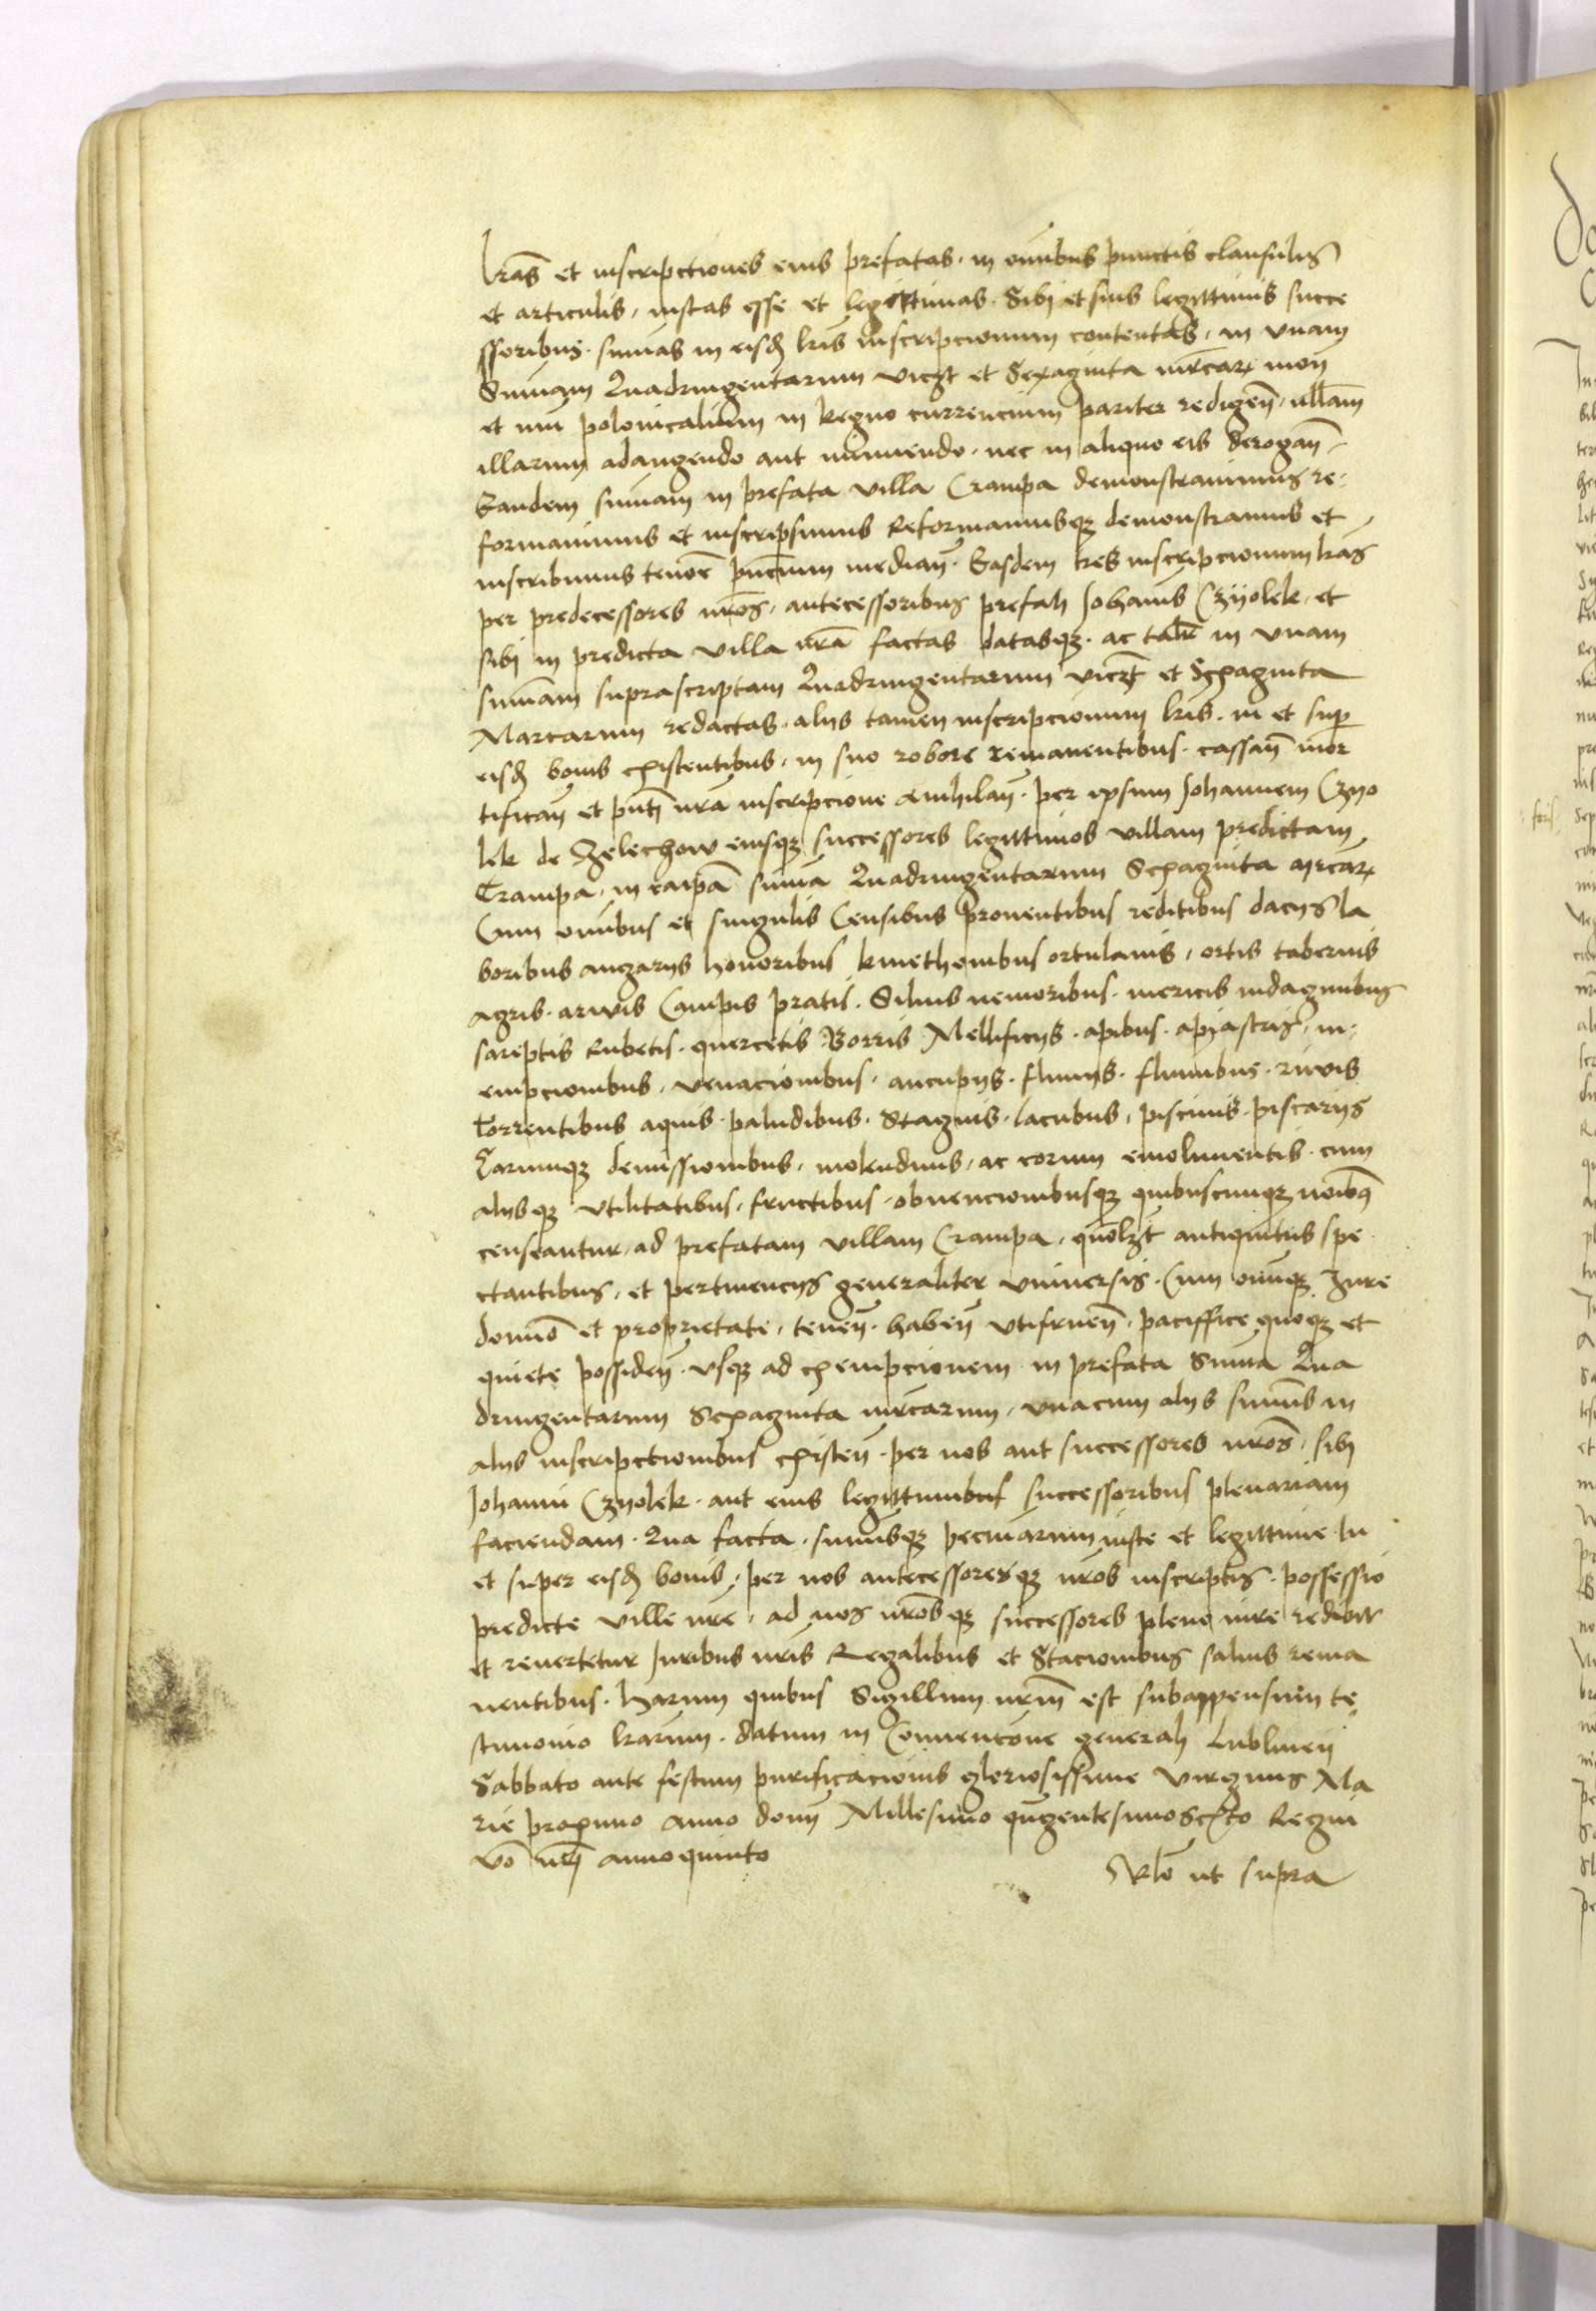 lr̃as et inscripctiones eius prefatas. in om̃ibus punctis clausulis
et articulis, iustas esse et legittimas. Sibi et suis legittimis succe
ssoribus. sum̃as in eisd̃ lr̃is inscripcionum contentas, in vnam
Sum̃am Quadringentarum viczt et Sexaginta mr̃carꝝ mon̄
et nui polonicalium in Regno currencium pariter redigen̄, ullam̄
illarum adaugendo aut minuendo. nec in aliquo eis derogan̄.
Eandem sum̃am in prefata villa Crampa demonstrauimus re-
formauimus et inscripsimus Reformamusqꝫ demonstramus et
inscribimus tenore pn̄cium median̄. Easdem tres inscripcionum lr̃as
per predecessores nr̃os, antecessoribus prefati Johannis Czyolek, et
sibi in predicta villa nr̃a factas datasqꝫ. ac talr̃ in vnam
sum̃am suprascriptam Quadringentarum viczt et Sexaginta
Marcarum redactas. alys tamen inscripcionum lr̃is. in et sup̱
eisd̃ bonis existentibus, in suo robore remanentibus. cassan̄ mor
tifican̄ et pn̄ti nr̃a inscripcione annihilan̄. per ipsum Johannem Czyo
lek de Zelechow eiusqꝫ successores legittimos villam predictam
Crampa, in eaip̃a sum̃a Quadringentarum Sexaginta mr̃carꝝ
Cum om̃ibus et singulis Censibus prouentibus reditibus dacys la
boribus angarys honoribus kmethonibus ortulanis, ortis tabernis
agris. aruis Campis pratis. Siluis nemoribus. mericis indaginibus
sareptis Rubetis. quercetis Borris Mellificys. apibus. apiastris, in-
empcionibus, venacionibus, aucupys. fluuys. fluminibus. riuis
Torrentibus aquis. paludibus. Stagnis. lacubus, piscinis. piscarys
Earumqꝫ demissionibus, molendinis, ac eorum emolumentis. cum
alysqꝫ vtilitatibus, fructibus. obuencionibusqꝫ quibuscunqꝫ noībꝫ
censeantur, ad prefatam villam Crampa, quolzt antiquitus spe
ctantibus, et pertinencys generaliter vniuersis. Cum om̃iqꝫ Jure
domīo et proprietate, tenen̄. haben̄ vtifruen̄, paciffice quoqꝫ et
quiete possiden̄. vsqꝫ ad exempcionem in prefata Sum̃a Qua
dringentarum Sexaginta mr̃carum, vnacum alys sum̃is in
alys inscripctionibus existen̄. per nos aut successores nr̃os, sibi
Johanni Czyolek. aut eius legittimibus successoribus plenariam
faciendam. Qua facta. sum̃isqꝫ pecuniarum iuste et legittime. In
et super eisd̃ bonis, per nos antecessoresqꝫ nr̃os inscriptis. possessio
predicte ville nr̃e, ad nos nr̃osqꝫ successores pleno iure redibit
et reuertetur Juribus nr̃is Regalibus et Stacionibus saluis rema
nentibus. Harum quibus Sigillum nr̃m est subappensum te
stimonio lr̃arum. datum in Conuencione generali Lublinen̄
Sabbato ante festum purificacionis gloriosissime virginis Ma
rie proximo anno domī Millesimo quingentesimosexto Regni
vo nr̃i anno quinto
Rl̃o ut supra